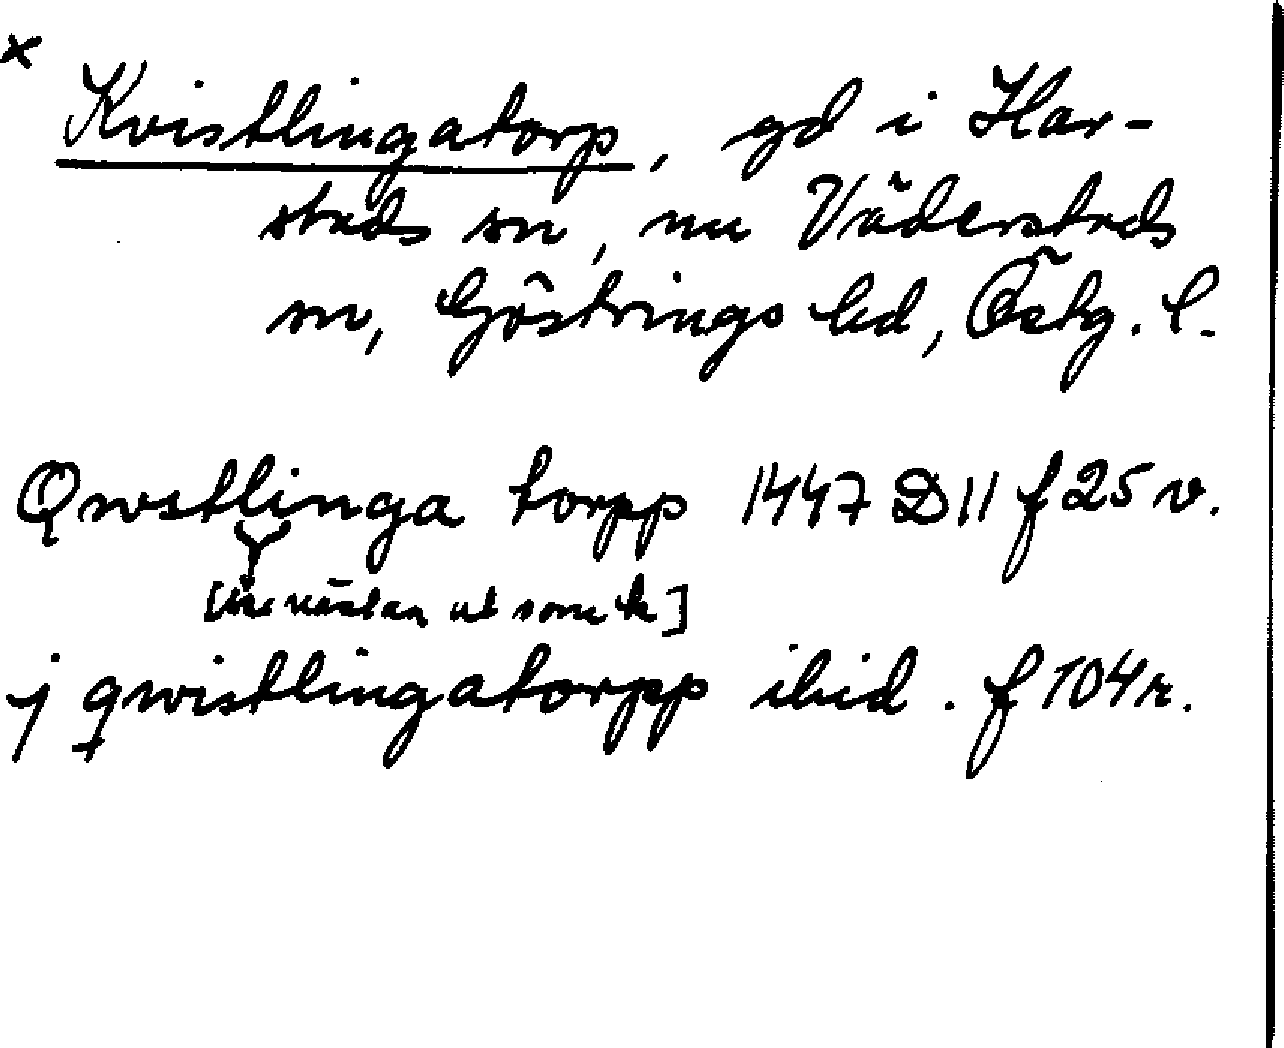 x
Kvistlingatorp, gd i Har-
stads sn, nu Väderstads
sn, Göstrings hd, Östg. l.
Qwstlinga torpp 1447 D11 f 25 v.
[ser nästan ut som k]
j qwistlingatorpp ibid. f 104 r.